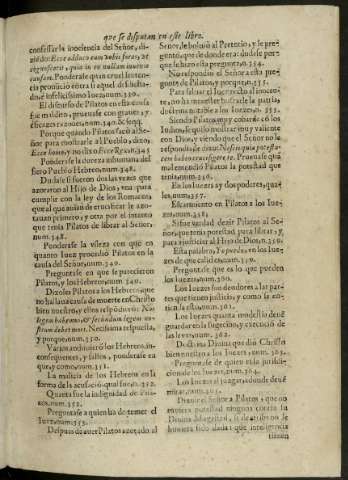 que se disputan en este libro.
confessar la inocencia del Señor, di-
ziẽdo: Ecce adduco eum vobis foras, vt
cognoscatis, quia in eo nullam inuenio
causam. Ponderase quan cruel senten-
cia pronuncio contra
infelicissimo Iuez, num.330.
El discurso de Pilatos en esta causa
fue malditõ, prueuase con graues, y
eficazes razones, num.340. & seqq.
Porque quando Pilatos sacò al Se-
ñor para mostrarle al Pueblo, dixo,
Ecce homo, y no dixo Ecce Rex, n.345
Ponderase la dureza inhumana del
fiero Pueblo Hebreo, num.348.
Dudase si fueron dos las vezes que
açotaron al Hijo de Dios, vna para
cumplir con la ley de los Romanos,
que al que auian de crucificar le aço-
tauan primero; y otra por el intento
que tenia Pilatos de librar al Señor,
num.348.
Ponderase la vileza con que en
quanto Iuez procediò Pilatos en la
causa del Señor, num.349.
Preguntase en que se parecieron
Pilatos, y los Hebreos, num.349.
Dizeles Pilatos a los Hebreos, que
no halla causa de muerte en Christo
bien nuestro, y ellos responden: Nos
legem habemus, & secundum legem no-
stram debet mori. Necissima respuesta,
y porque, num.350.
Varios anduuieron los Hebreos, in-
consequentes, y falsos, ponderase en
que, y como, num.351.
La malicia de los Hebreos en la
forma de la acusacion qual fue, n.352.
Quanta fue la indignidad de Pila-
tos, num.352.
Preguntase a quien ha de temer el
Iuez, num.353.
Despues de auer Pilatos açotado al
Señor, le boluiò al Pretorio, y le pre-
guntò, que de donde era: dudase por-
que le hizo esta pregunta, n.354.
No respondiò el Señor a esta pre-
gunta de Pilatos, y porque, n.354.
Para saluar el Iuez recto al inocen-
te, no ha menester buscarle la patria,
de donde es, n.355.
Siendo Pilatos muy cobarde cõ los
Iudios, se quiso mostrar muy valiente
con Dios, y viendo que el Señor no le
respondia, le dize: Nescis quia potesta-
tem habeo crucifigere te. Prueuase quã
mal entendiò Pilatos la potestad que
tenia, num.356.
En los Iuezes ay dos poderes, qua-
les, num.357.
Escarmiento en Pilatos a los Iue-
zes, num.358.
Si fue verdad dezir Pilatos al Se-
ñor, que tenia potestad para librar, y
para justiciar al Hijo de Dios, n.359.
Esta palabra, Yo puedo, en los Iue-
zes de que calidad es, num.359.
Preguntase que es lo que pueden
los Iuezes, num.360.
Los Iuezes son deudores a las par-
tes que tienen justicia, y como la en-
tienda esta, num.361.
Los Iuezes quanta modestia deuẽ
guardar en la sugecion, y execucion de
las leyes, num.362.
Doctrina Diuina que diò Christo
bien nuestro a los Iuezes, num.363.
Preguntase de quien es la jurisdi-
cion de los Iuezes, num.364.
Los Iuezes al juzgar, adonde deuẽ
mirar, num.365.
Dixole el Señor a Pilatos, que no
tuuiera potestad ninguna contra su
Diuina Magestad, si de arriba no le
huuiera sido dada: que inteligencia
tienen